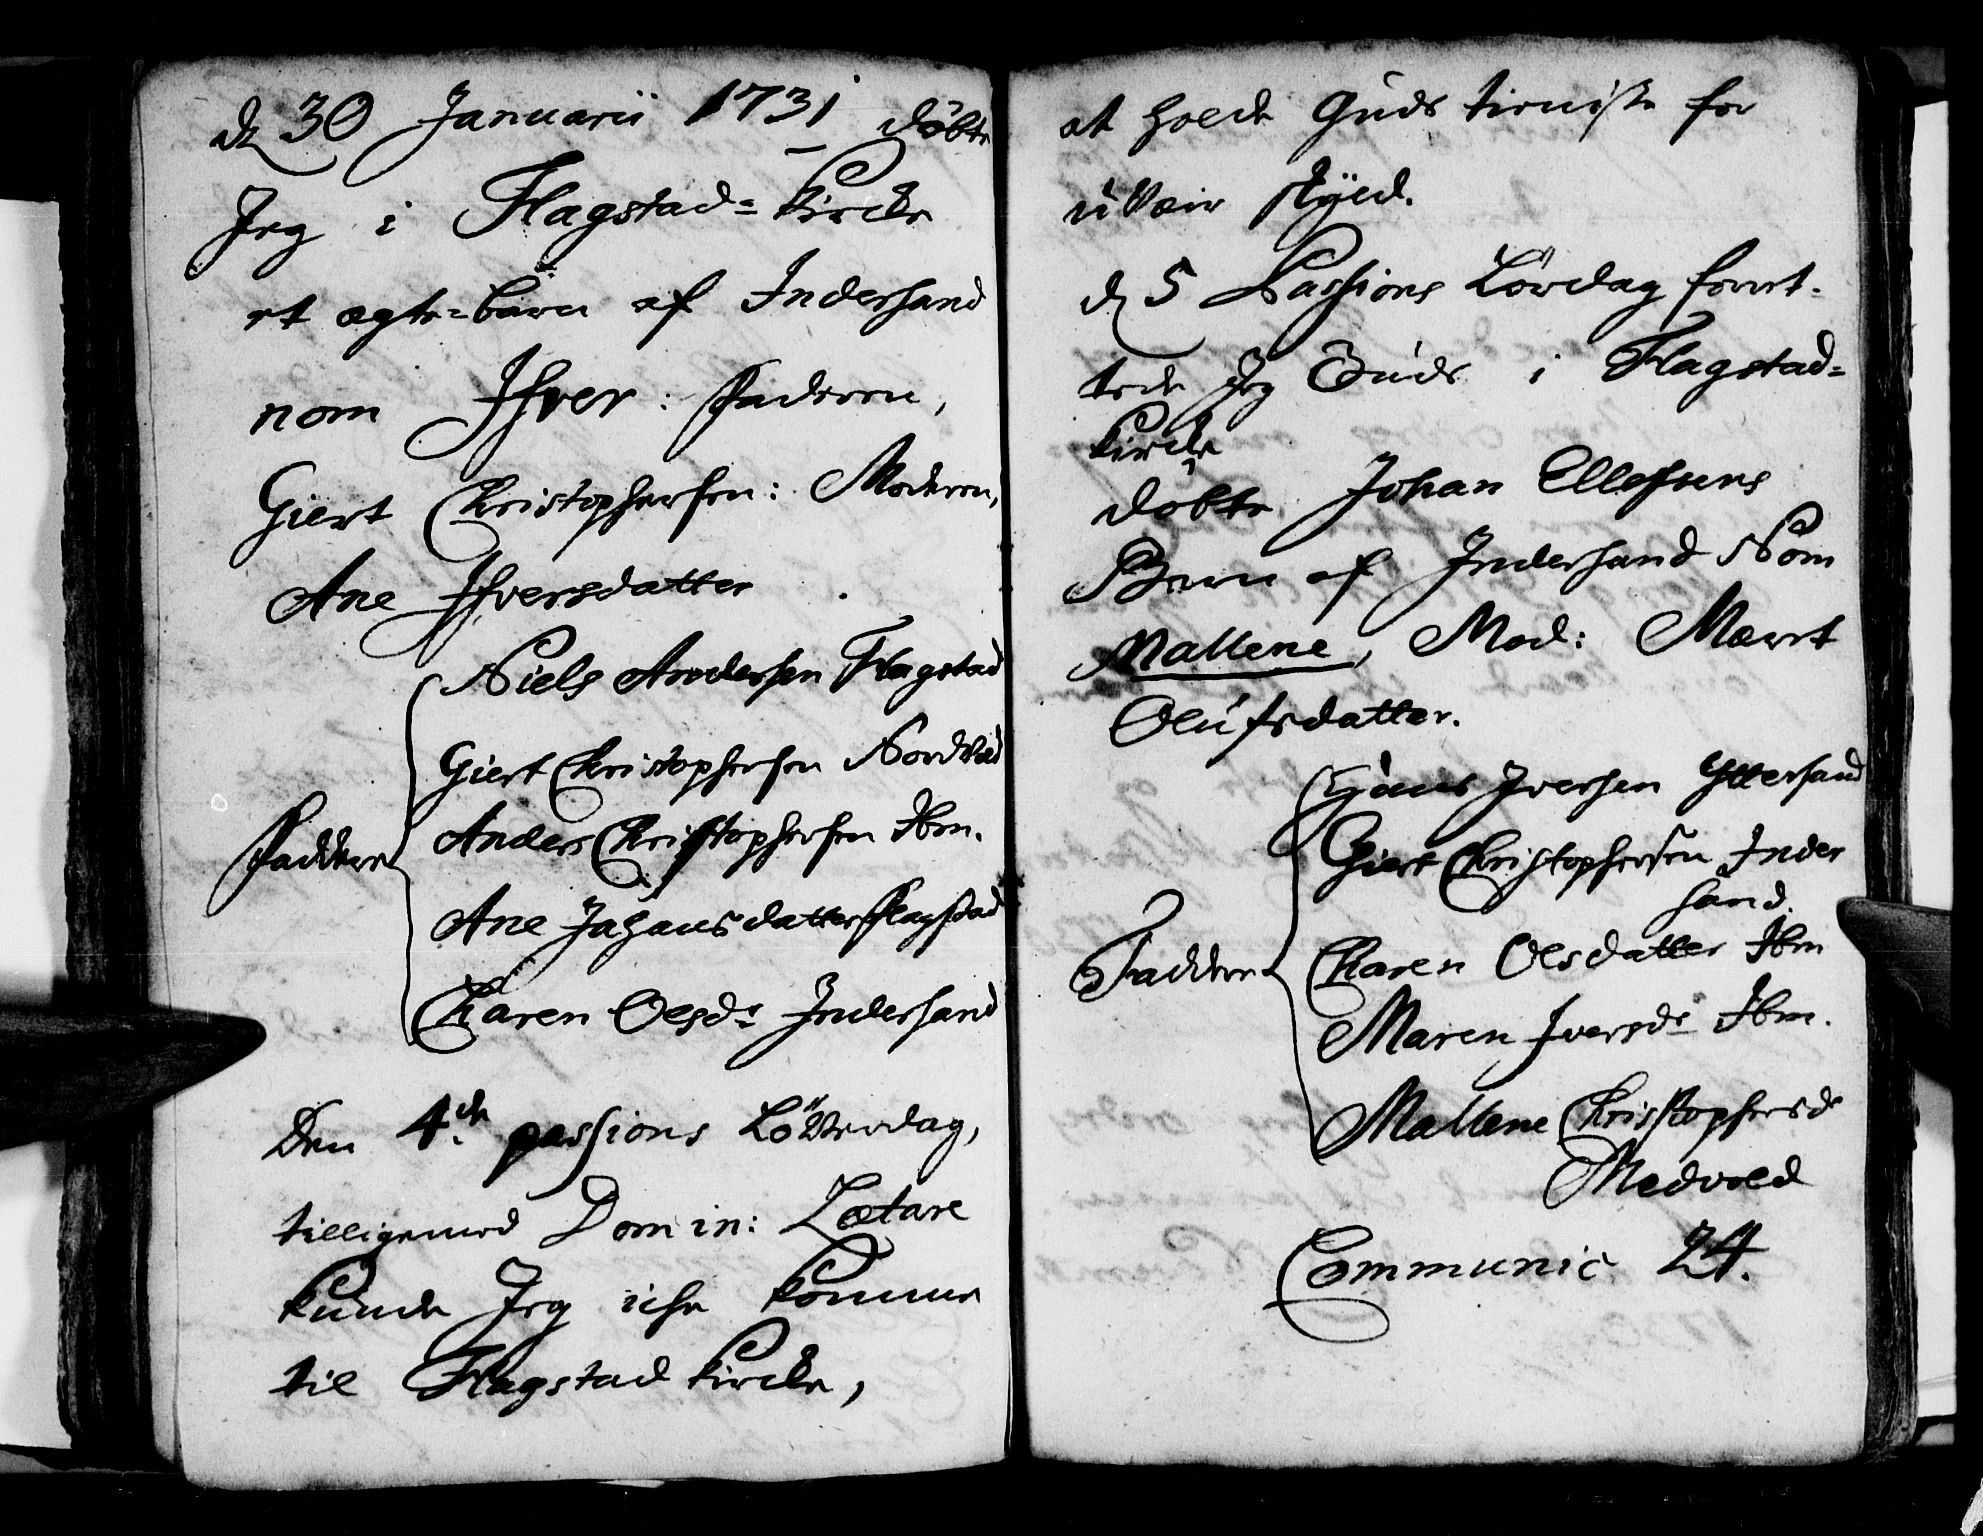 d 30 Januarii 1731 døbte
Jeg i Flagstad=Kircke
et ægte=barn af Indersand
nom Ifver: Faderen,
Giert Christophersen: Moderen,
Ane Ifversdatter
Niels Andersen Flagstad
Giert Christophersen
Anders Christophersen Ibm.
Faddere
Ane Johansdatter Flagstad
Karen Olsdr Indersand
Den 4de passions Løverdag,
tilligemed Domin: Lætare
kunde Jeg icke komme
til Flagstad Kircke,
at holde Guds tieniste for
uvæir skyld.
d 5 Passions Lördag forret-
tede Jeg Guds i Flagstad=
Kircke
døbte Johan Ellefsens
Barn af Indersand Nom
Mallene, Mod: Mæret
Olufsdatter.
Iversen Yttersand
Giert Christophersen Inder
sand.
Faddere
Karen Olsdatter Ibm
Maren Iversdr Ibm.
Mallene Christophersdr
Medvold
Communic 24.